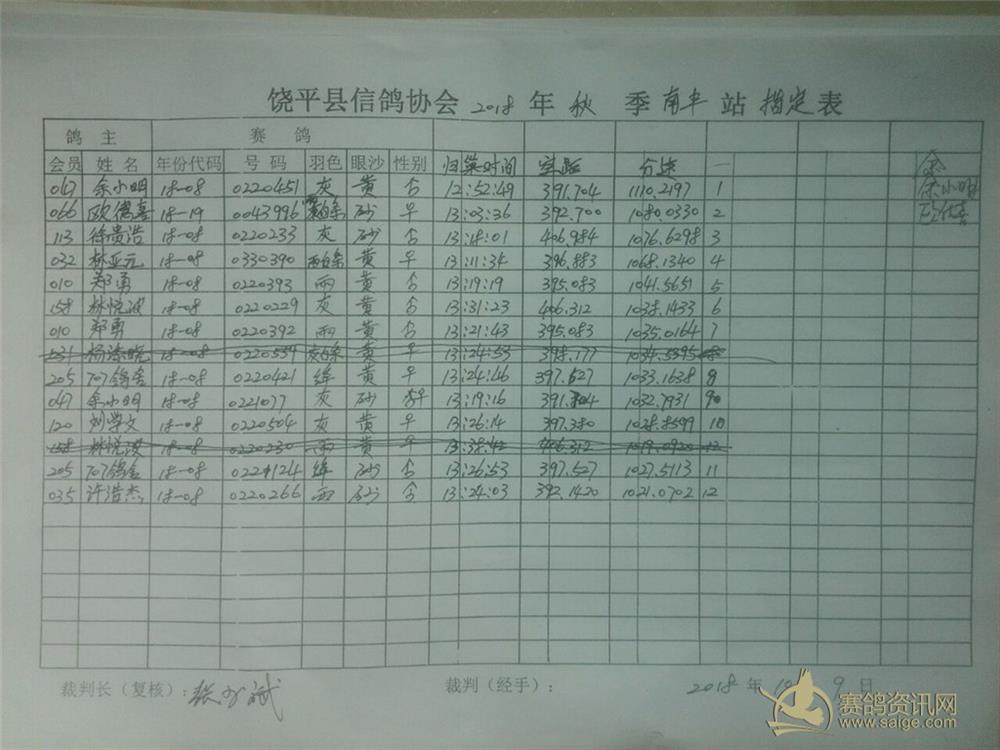 饶平县信鸽协会 2018 年 秋 季 南丰 站 指定表
鸽 主 赛 鸽
会员 姓名 年份代码 号码 羽色 眼沙 性别 归巢时间 空距 分速 一
047 余小明 18-08 0220451 灰 黄 12:52:49 391.704 1110.2197 1
066 欧德喜 18-19 0043996 砂 13:03:36 392.700 1080.0330 2
113 徐贵浩 18-08 0220233 灰 砂 13:18:01 406.984 1076.6298 3
032 林亚元 18-08 0330390 雨白条 黄 13:11:34 396.883 1068.1340 4
010 郑勇 18-08 0220393 雨 黄 13:19:19 395.083 1041.5651 5
158 林悦波 18-08 0220229 灰 黄 13:31:23 406.312 1038.1433 6
010 郑勇 18-08 0220392 雨 黄 13:21:43 395.083 1035.0164 7
18-08 黄 13:24:53 398.177 1034.5395
205 707鸽舍 18-08 0220421 绛 黄 13:24:46 397.527 1033.1638
047 余小明 18-08 0221077 灰 砂 13:19:16 1032.7931
120 刘学文 18-08 0220504 灰 黄 13:26:14 397.380 1028.8599 10
158 林悦波 18-08 0220230 雨 黄 406.312 12
205 707鸽舍 18-08 绛 砂 13:26:53 397.527 1027.5113 11
035 许浩杰 18-08 0220266 雨 砂 13:24:03 392.1420 1021.0702 12
余
余小明
裁判长（复核）： 裁判（经手）： 2018 年 9 日
赛鸽资讯网
www.saige.com